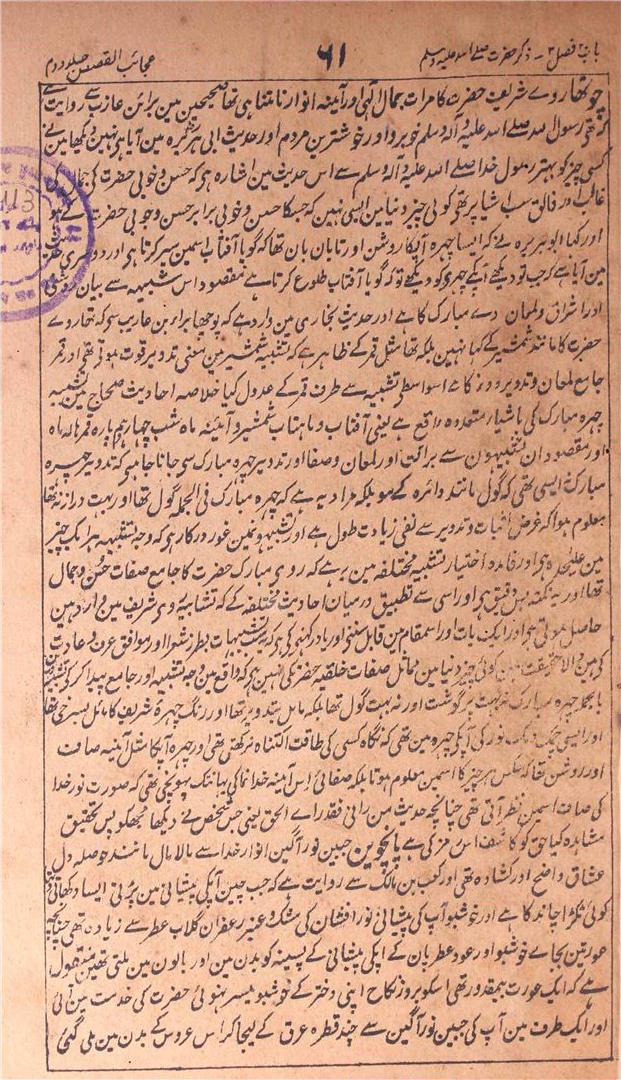 باب ۲ فصل ۳- ذکر حضرت صلے اللہ علیہ وسلم ۶۱ عجائب القصص جلد دوم
چوتھا روے شریعت حضرت کا مرات جمال آلہی اور آئینہ انوار نا متناہی تھا صحیحین مین برائن عازب سے روایت ہے
کہ تھے رسول اللہ صلے اللہ علیہ وآلہ وسلم خوبرو اور خوشترین مردم اور حدیث ابی ہریرہ مین آیا ہی نہین دیکھا مین نے
کسی چیز کو بہتر رسول خدا صلے اللہ علیہ وآلہ وسلم سے اس حدیث مین اشارہ ہی کہ حسن و خوبی حضرت کی
غالب ور فائق سب اشیا پر تھی کوئی چیز دنیا مین ایسی نہین کہ جسکا حسن و خوبی برابر حسن و خوبی حضرت کے ہو
اور کہا ابو ہریرہ نے کہ ایسا چہرہ آپکا روشن اور تابان بان تھا کہ گویا آفتاب اسمین سیر کرتا ہی اور دوسری
مین آیا ہے کہ جب تو دیکھے آپکے چہرہ کو دیکھے تو کہ گویا آفتاب طلوع کرتا ہے مقصود اس شبیہ سے بیان
اور اشراق و لمعان روے مبارک کا ہے اور حدیث بخاری مین وارد ہے کہ پوچھا براء بن عازب سی کہ تھا روے
حضرت کا مانند شمشیر کے کہا نہین بلکہ تھا مثل قمر کے ظاہر ہے کہ تشبیہ شمشیر مین معنی تدویر فوت ہوتی تھی اور قمر
جامع لمعان و تدویر دونو کا ہے اسواسطی تشبیہ سے طرف قمر کے عدول کیا خلاصہ احادیث صحاح مین تشبیہ
چہرہ مبارک کی باشیاء متعددہ واقع ہے یعنی آفتاب و ماہتاب شمشیر و آئینہ ماہ شب چہاردہم پارہ قمر ہالہ ماہ
اور مقصود ان تشبیہون سے براقت اور لمعان و صفا اور تدویر چہرہ مبارک سی جانا چاہیے کہ تدویر چہرہ
مبارک ایسی تھی کہ گول مانند دائرہ کے ہو بلکہ مراد یہ ہے کہ چہرہ مبارک فی الجملہ گول تھا اور بہت دراز نہ تھا
معلوم ہوا کہ غرض اثبات و تدویر سے نفی زیادت طول ہے اور تشبیہونمین غور درکار ہی کہ وجہ تشبیہ ہر ایک چیز
مین علیحدہ ہی اور فائدہ اختیار تشبیہ مختلفہ مین یہ ہے کہ روی مبارک حضرت کا جامع صفات حسن و جمال
تھا اور یہ نکتہ بس دقیق ہی اور اسی سے تطبیق درمیان احادیث مختلفہ کے کہ تشابیہ روی شریف مین وارد ہین
حاصل ہوتی ہی اور ایک بات اور اسمقام مین قابل سننے اور یاد رکھنے کی ہی کہ یہ تشبیہات بطرز شعرا اور موافق عرف و عادت
کی ہین والا حقیقت مین کوئی چیز دنیا مین مماثل صفات خلقیہ حضرتکی نہین ہی کہ واقع مین وجہ تشبیہ اور جامع پیدا کر کے تشبیہ
بالجملہ چہرہ مبارک نہ بہت پر گوشت اور نہ بہت گول تھا بلکہ مائل بتدویر تھا اور رنگ چہرۂ شریف کا مائل بسرخی تھا
اور ایسی چمک دمک نور کی آپکے چہرہ مین تھی کہ نگاہ کسی کی طاقت اکتناہ نہ رکھتی تھی اور چہرہ آپکا مثل آئینہ صاف
اور روشن تھا کہ عکس ہر چیز کا اسمین معلوم ہوتا بلکہ صفائی اس آئینہ خدا نما کی یہانتک پہونچی تھی کہ صورت نور خدا
کی صاف اسمین نظر آتی تھی چنانچہ حدیث من رانی فقد راے الحق یعنی جس شخص نے دیکھا مجھکو پس تحقیق
مشاہدہ کیا حق کو کاشف اس رمز کی ہے پانچوین جبین نور آگین انوار خدا سے مالا مال مانند حوصلہ دل
عشاق واضح اور کشادہ تھی اور کعب بن مالک سے روایت ہے کہ جب چین آپکی پیشانی مین پڑتی ایسا دکھائی
کوئی ٹکڑا چاند کا ہے اور خوشبو آپ کی پیشانی نور افشان کی مشک و عنبر زعفران گلاب عطر سے زیادہ تھی چنانچہ
عورتین بجاے خوشبو اور عود عطریان کے آپکی پیشانی کے پسینہ کو بدن مین اور بالون مین ملتی تھین منقول
ہے کہ ایک عورت بیمقدور تھی اسکو بروز نکاح اپنی دختر کے خوشبو میسر نہوئی حضرت کی خدمت مین آئی
اور ایک طرف مین آپ کی جبین نور آگین سے چند قطرہ عرق کے لیجا کر اس عروس کے بدن مین ملی گئی